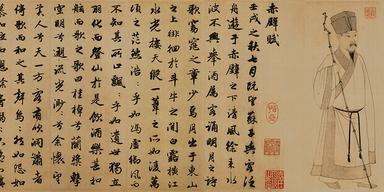 赤壁賦
壬戌之秋七月既望蘇子與客泛
舟遊于赤壁之下清風徐來水
波不興舉酒屬客誦明月之詩
歌窈窕之章少焉月出于東山
之上徘徊於斗牛之間白露橫江
水光接天縱一葦之所如凌萬
頃之茫然浩浩乎如馮虛御風而
不知其所止飄飄乎如遺世獨立
羽化而登仙於是飲酒樂甚扣
舷而歌之歌曰桂棹兮蘭槳擊
空明兮泝流光渺渺兮余懷望
美人兮天一方客有吹洞簫者
倚歌而和之其聲嗚嗚然如怨如